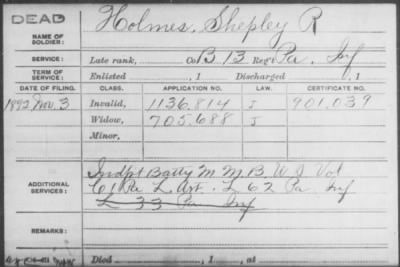 DEAD
NAME OF SOLDIER: Holmes, Shepley R
SERVICE: Late rank, Co B, 13 Reg't Pa. Inf
TERM OF SERVICE: Enlisted , 1 Discharged , 1
DATE OF FILING. CLASS. APPLICATION NO. LAW. CERTIFICATE NO.
1892 Nov. 3 Invalid, 1136,814 J 901,039
Widow, 705,688 J
Minor,
ADDITIONAL SERVICES: Indpt Batty M M B. W. S Vol
C 1 Pa L Art. L 62 Pa Inf
L 33 Pa Inf
REMARKS:
Died , 1 , at